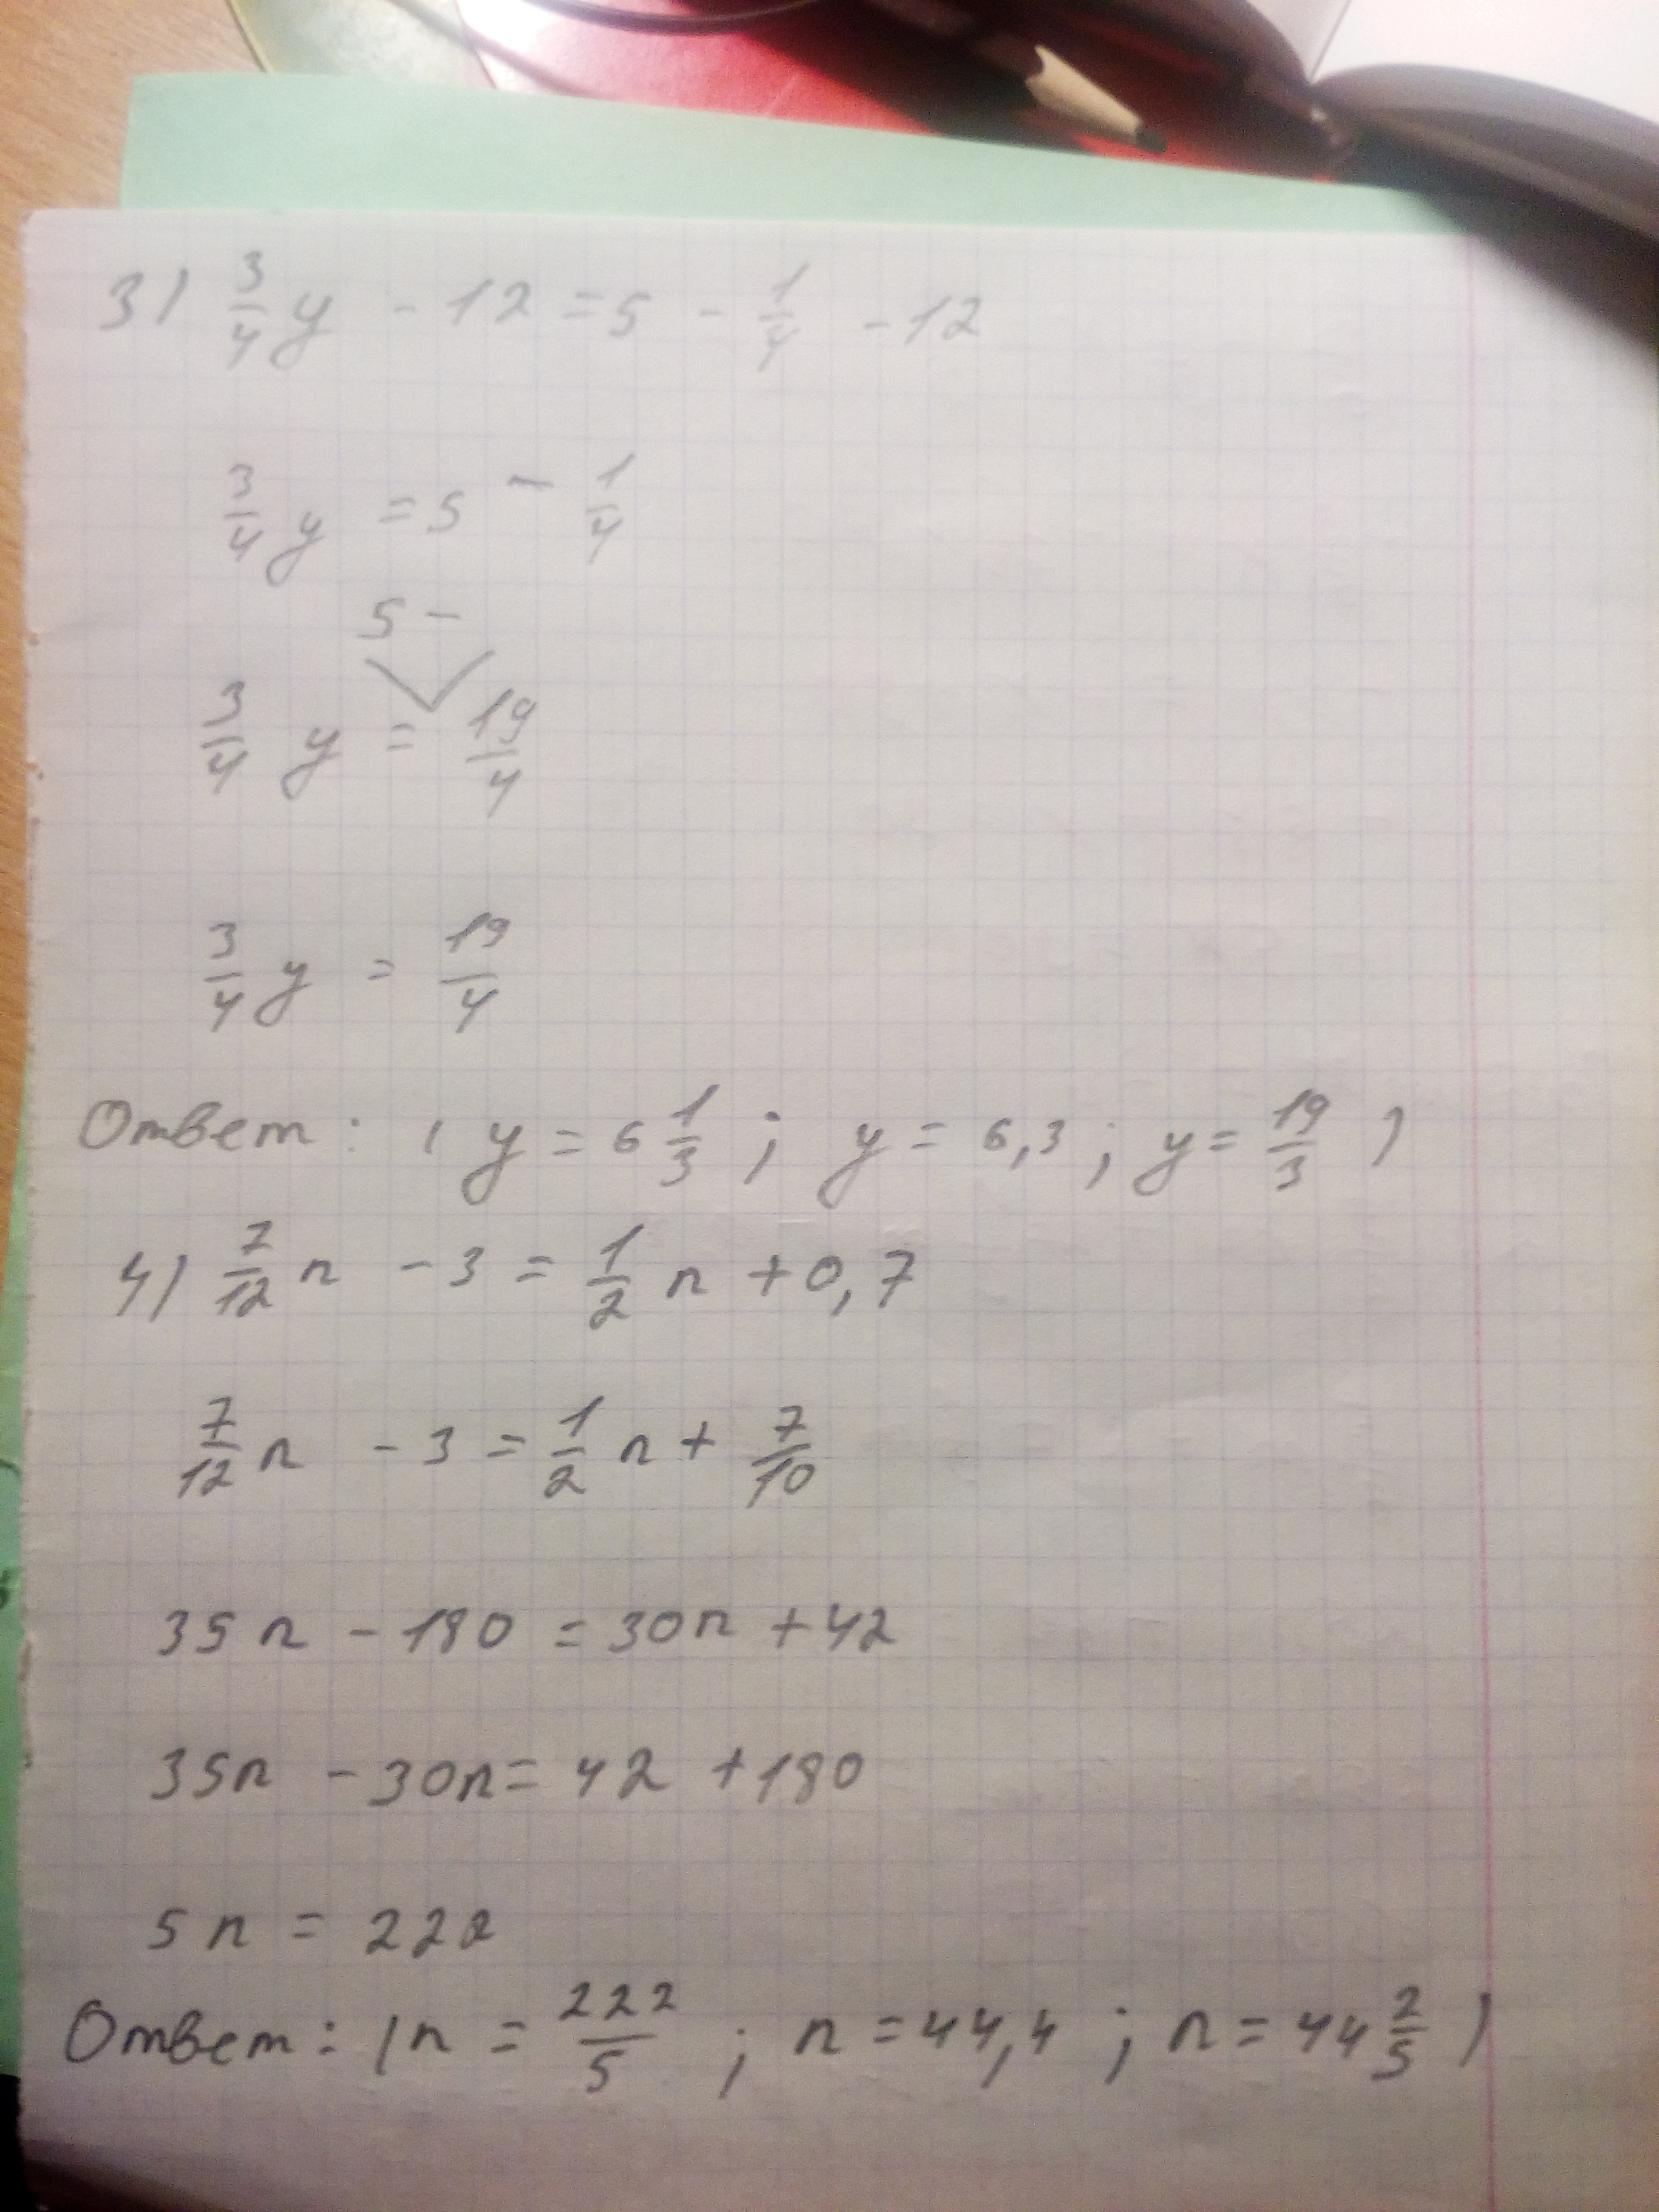 3) 3/4 y - 12 = 5 - 1/4 - 12
3/4 y = 5 - 1/4
5 -
3/4 y = 19/4
3/4 y = 19/4
Ответ: ( y = 6 1/3 ; y = 6,3 ; y = 19/3 )
4) 7/12 n - 3 = 1/2 n + 0,7
7/12 n - 3 = 1/2 n + 7/10
35n - 180 = 30n + 42
35n - 30n = 42 + 180
5n = 222
Ответ: (n = 222/5 ; n = 44,4 ; n = 44 2/5 )